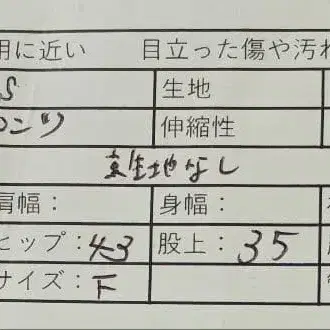 用に近い 目立った傷や汚れ
S 生地
ロンツ 伸縮性
裏生地なし
肩幅： 身幅：
ヒップ：43 股上：35
サイズ：F